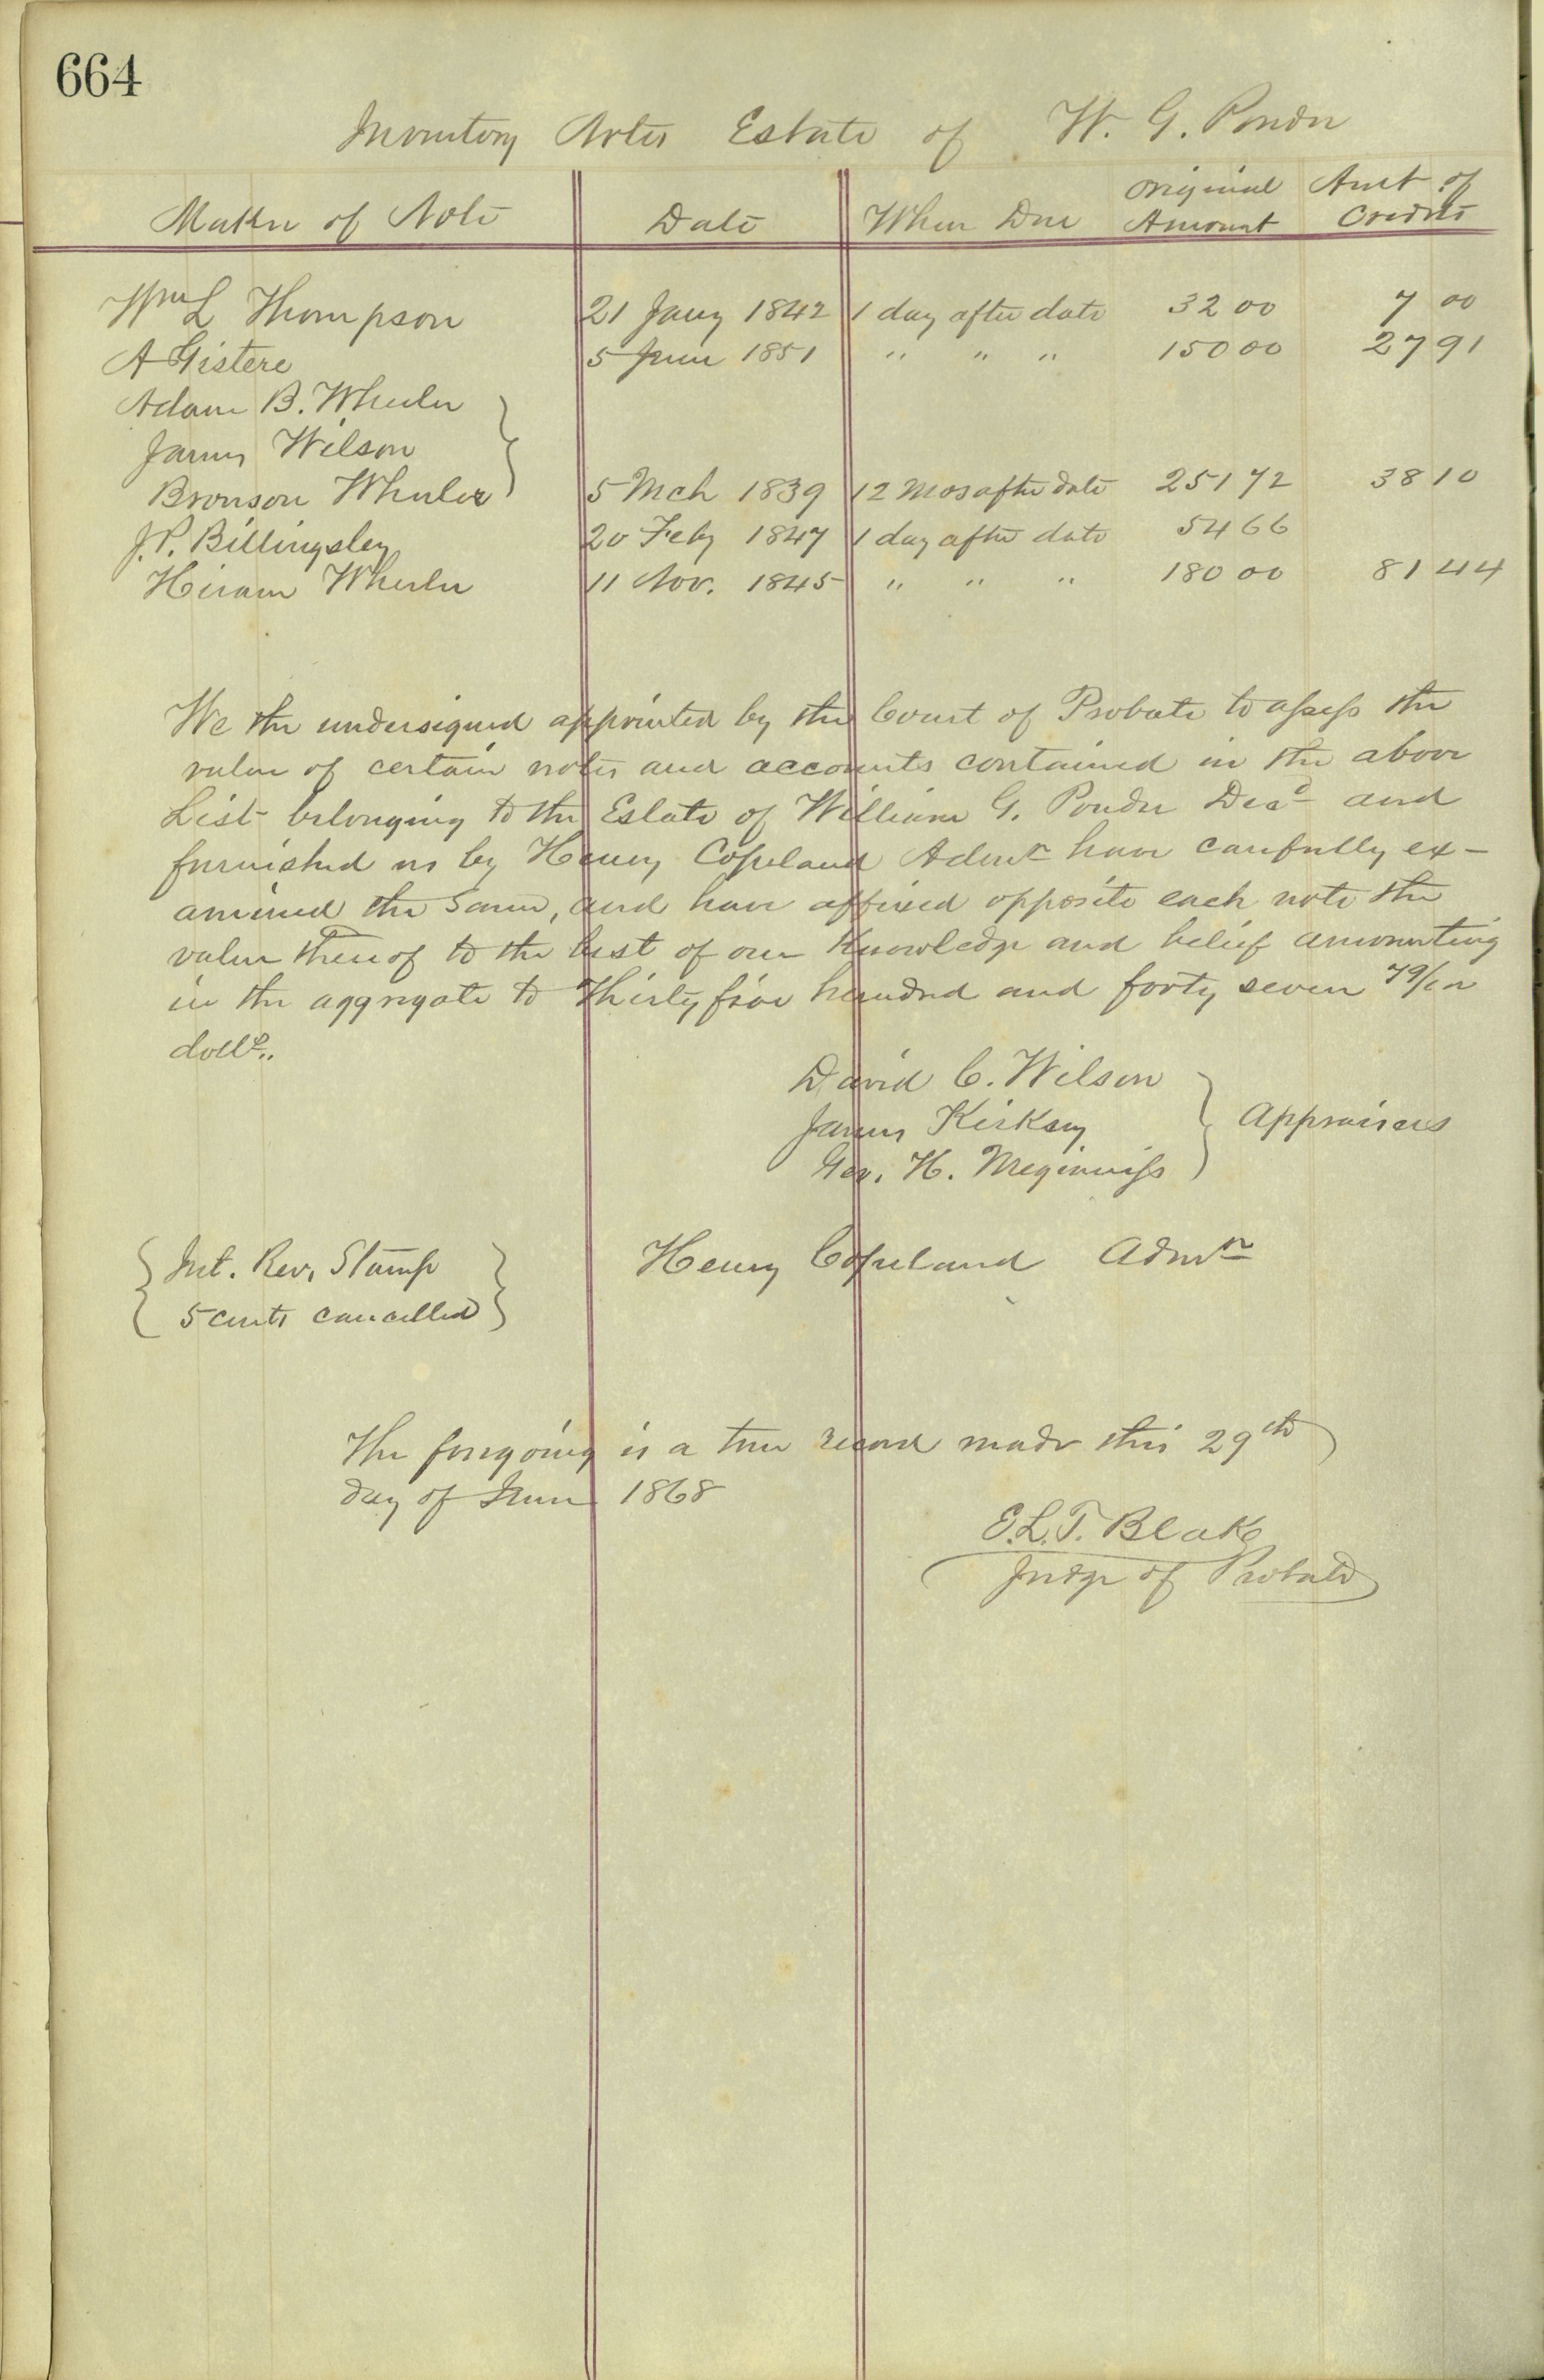 664
Inventory Notes Estate of W. G. Ponder
Maker of Note Date When Due Original Amount Amt of Credits
Wm L Thompson 21 Jany 1842 1 day after date 32 00 7 00
A Gistere 5 June 1851 " " " 150 00 27 91
Adam B. Wheeler
James Wilson
Bronson Wheeler 5 Mch 1839 12 Mos after date 251 72 38 10
J. P. Billingsley 20 Feby 1847 1 day after date 54 66
Hiram Wheeler 11 Nov. 1845 " " " 180 00 81 44
We the undersigned appointed by the Court of Probate to assess the
value of certain notes and accounts contained in the above
List belonging to the Estate of William G. Ponder Decd and
furnished us by Henry Copeland Admr have carefully ex-
amined the Same, and have affixed opposite each note the
value thereof to the best of our Knowledge and belief amounting
in the aggregate to Thirty five hundred and forty seven
dolls..
David C. Wilson
James Kirksey
Geo. H. Meginniss
Appraisers
Int. Rev. Stamp
5 cents cancelled
Henry Copeland Admr
The foregoing is a true record made this 29th
day of June 1868
E. L. T. Blake
Judge of Probate